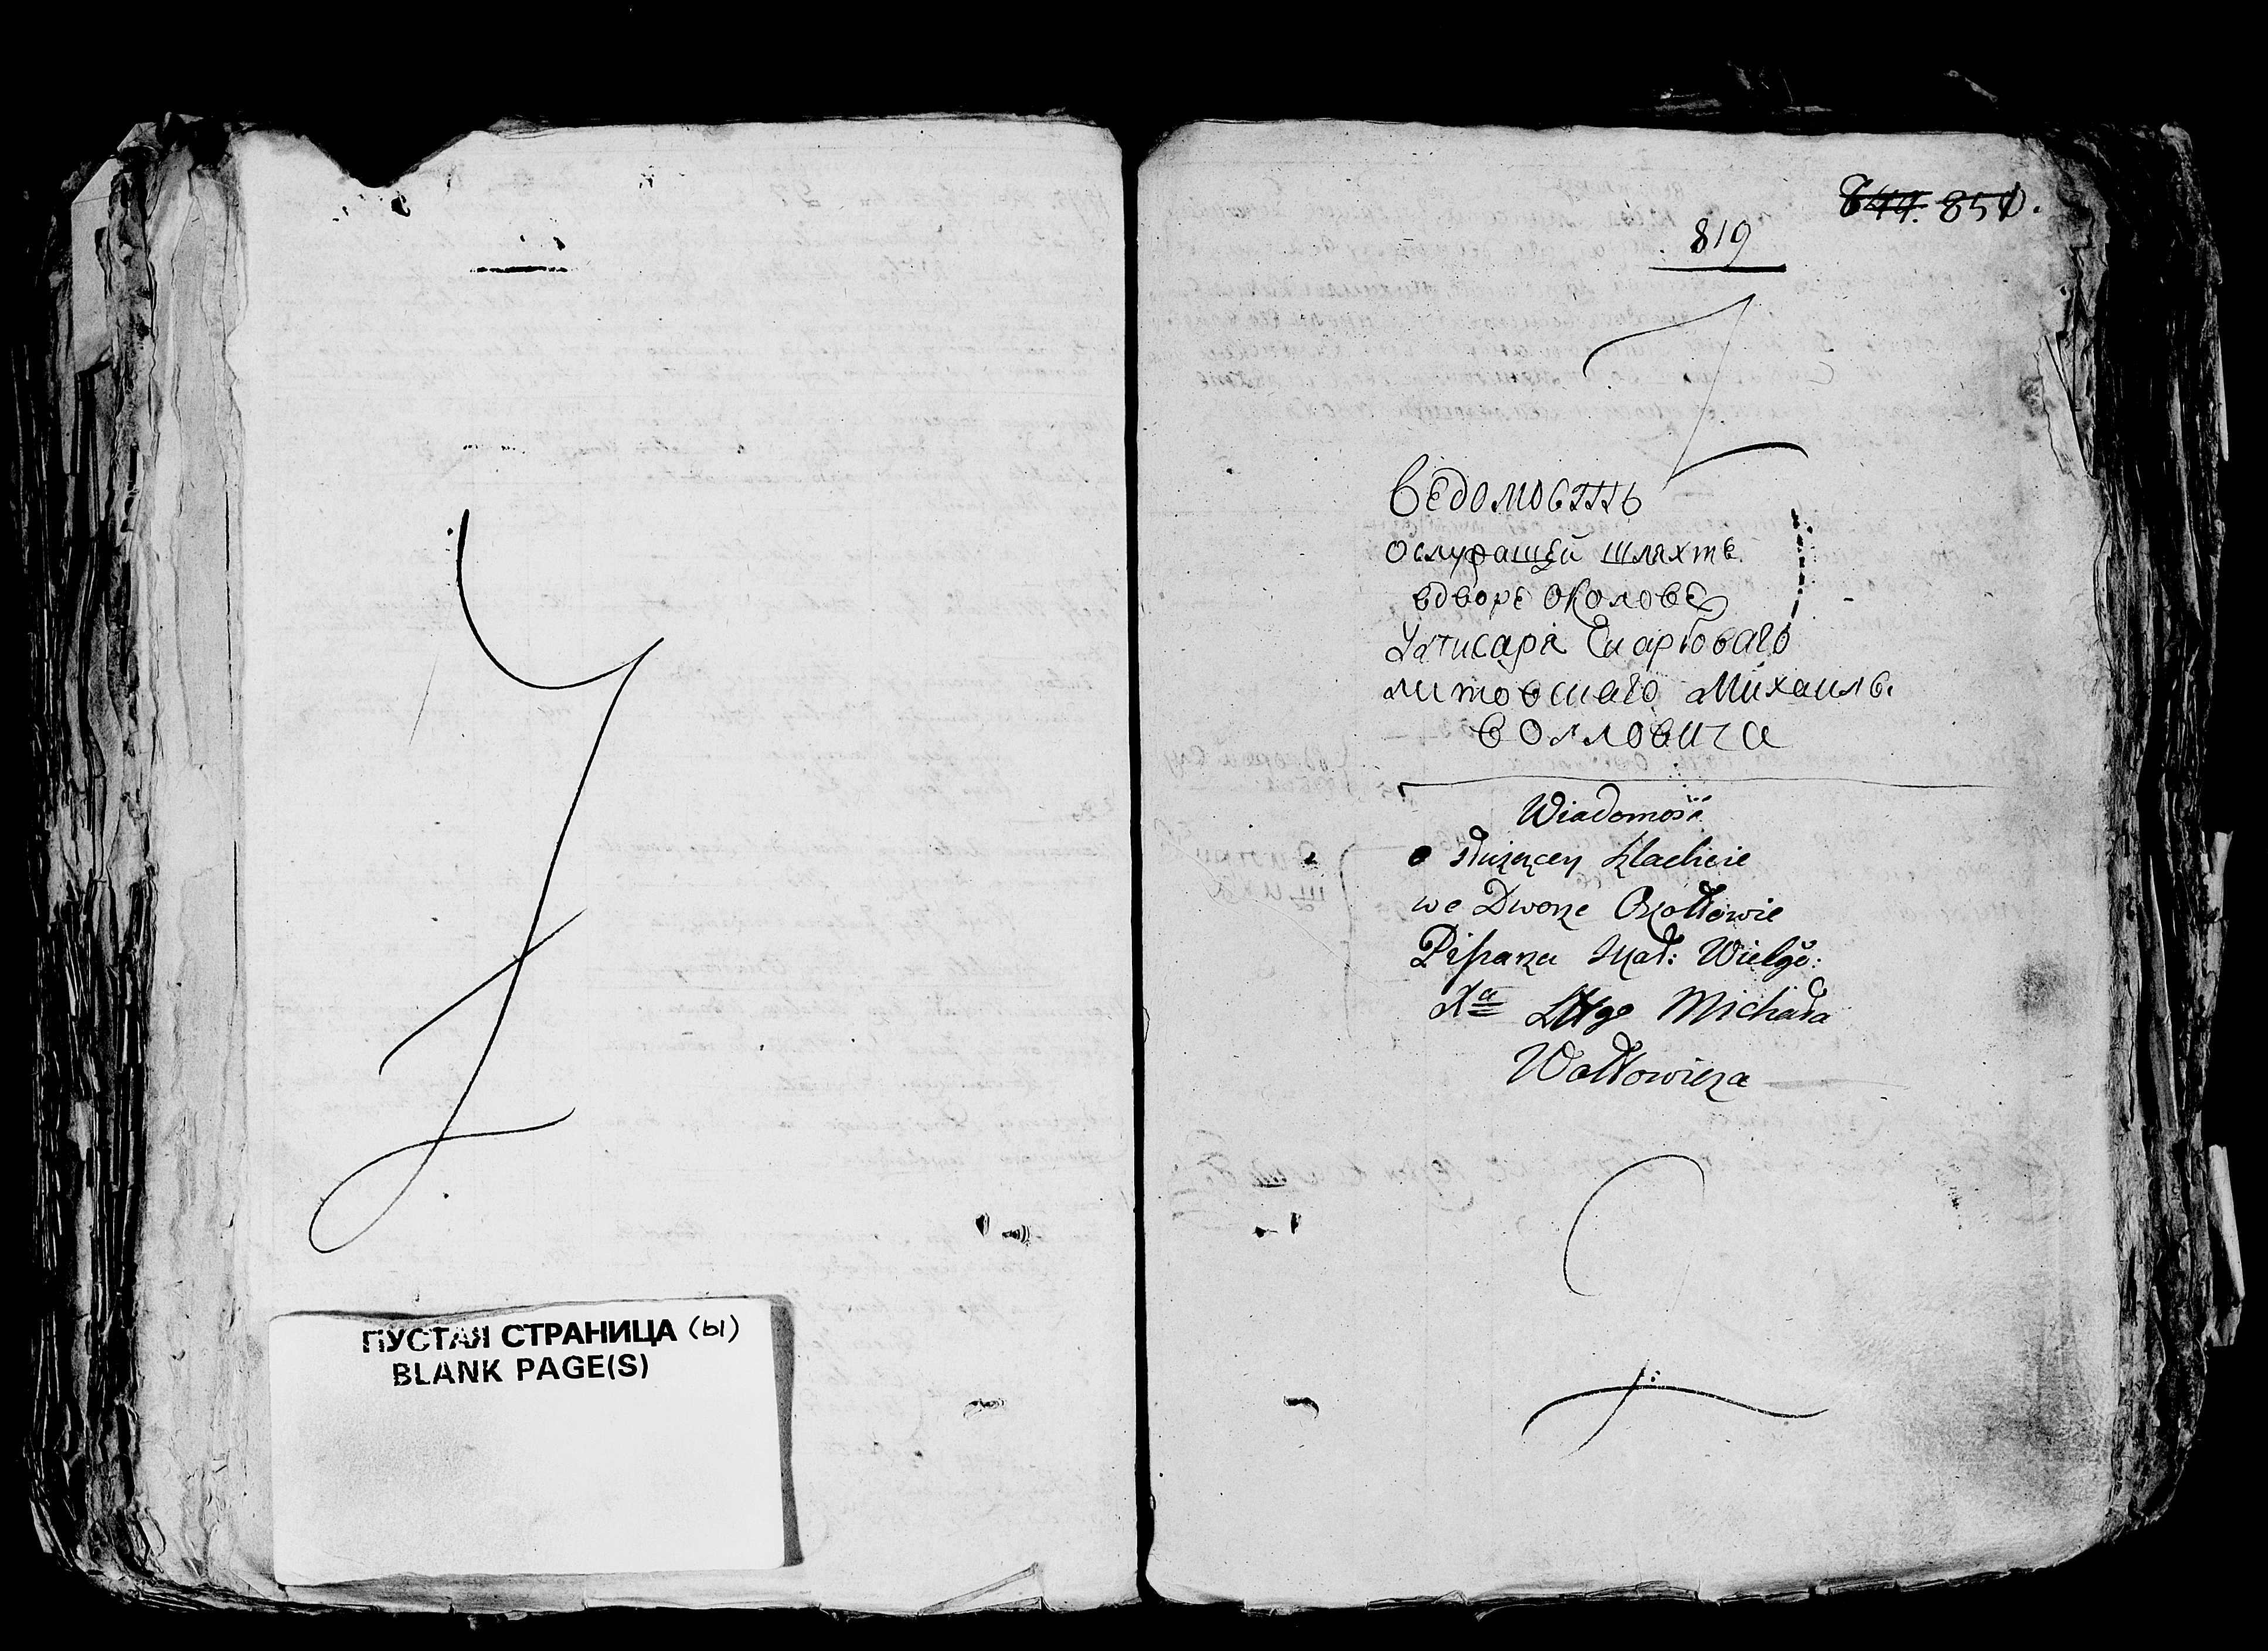 ПУСТАЯ СТРАНИЦА (ы)
BLANK PAGE(S)
844. 851.
819
Ведомость
о служащей шляхтѣ
вдворѣ Околовѣ
Уписаря Скарбоваго
литовскаго Михаила
Волловича
Wiadomość
o służącey szlachcie
we Dworze Okołłowie
Pisarza Skał: Wielgo:
Xa Littgo Michała
Wołłowicza